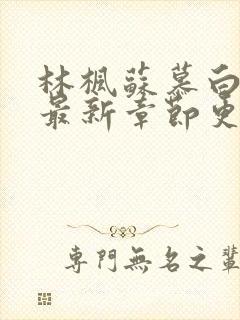 林楓蘇慕白
最新章節更
專門無名之輩